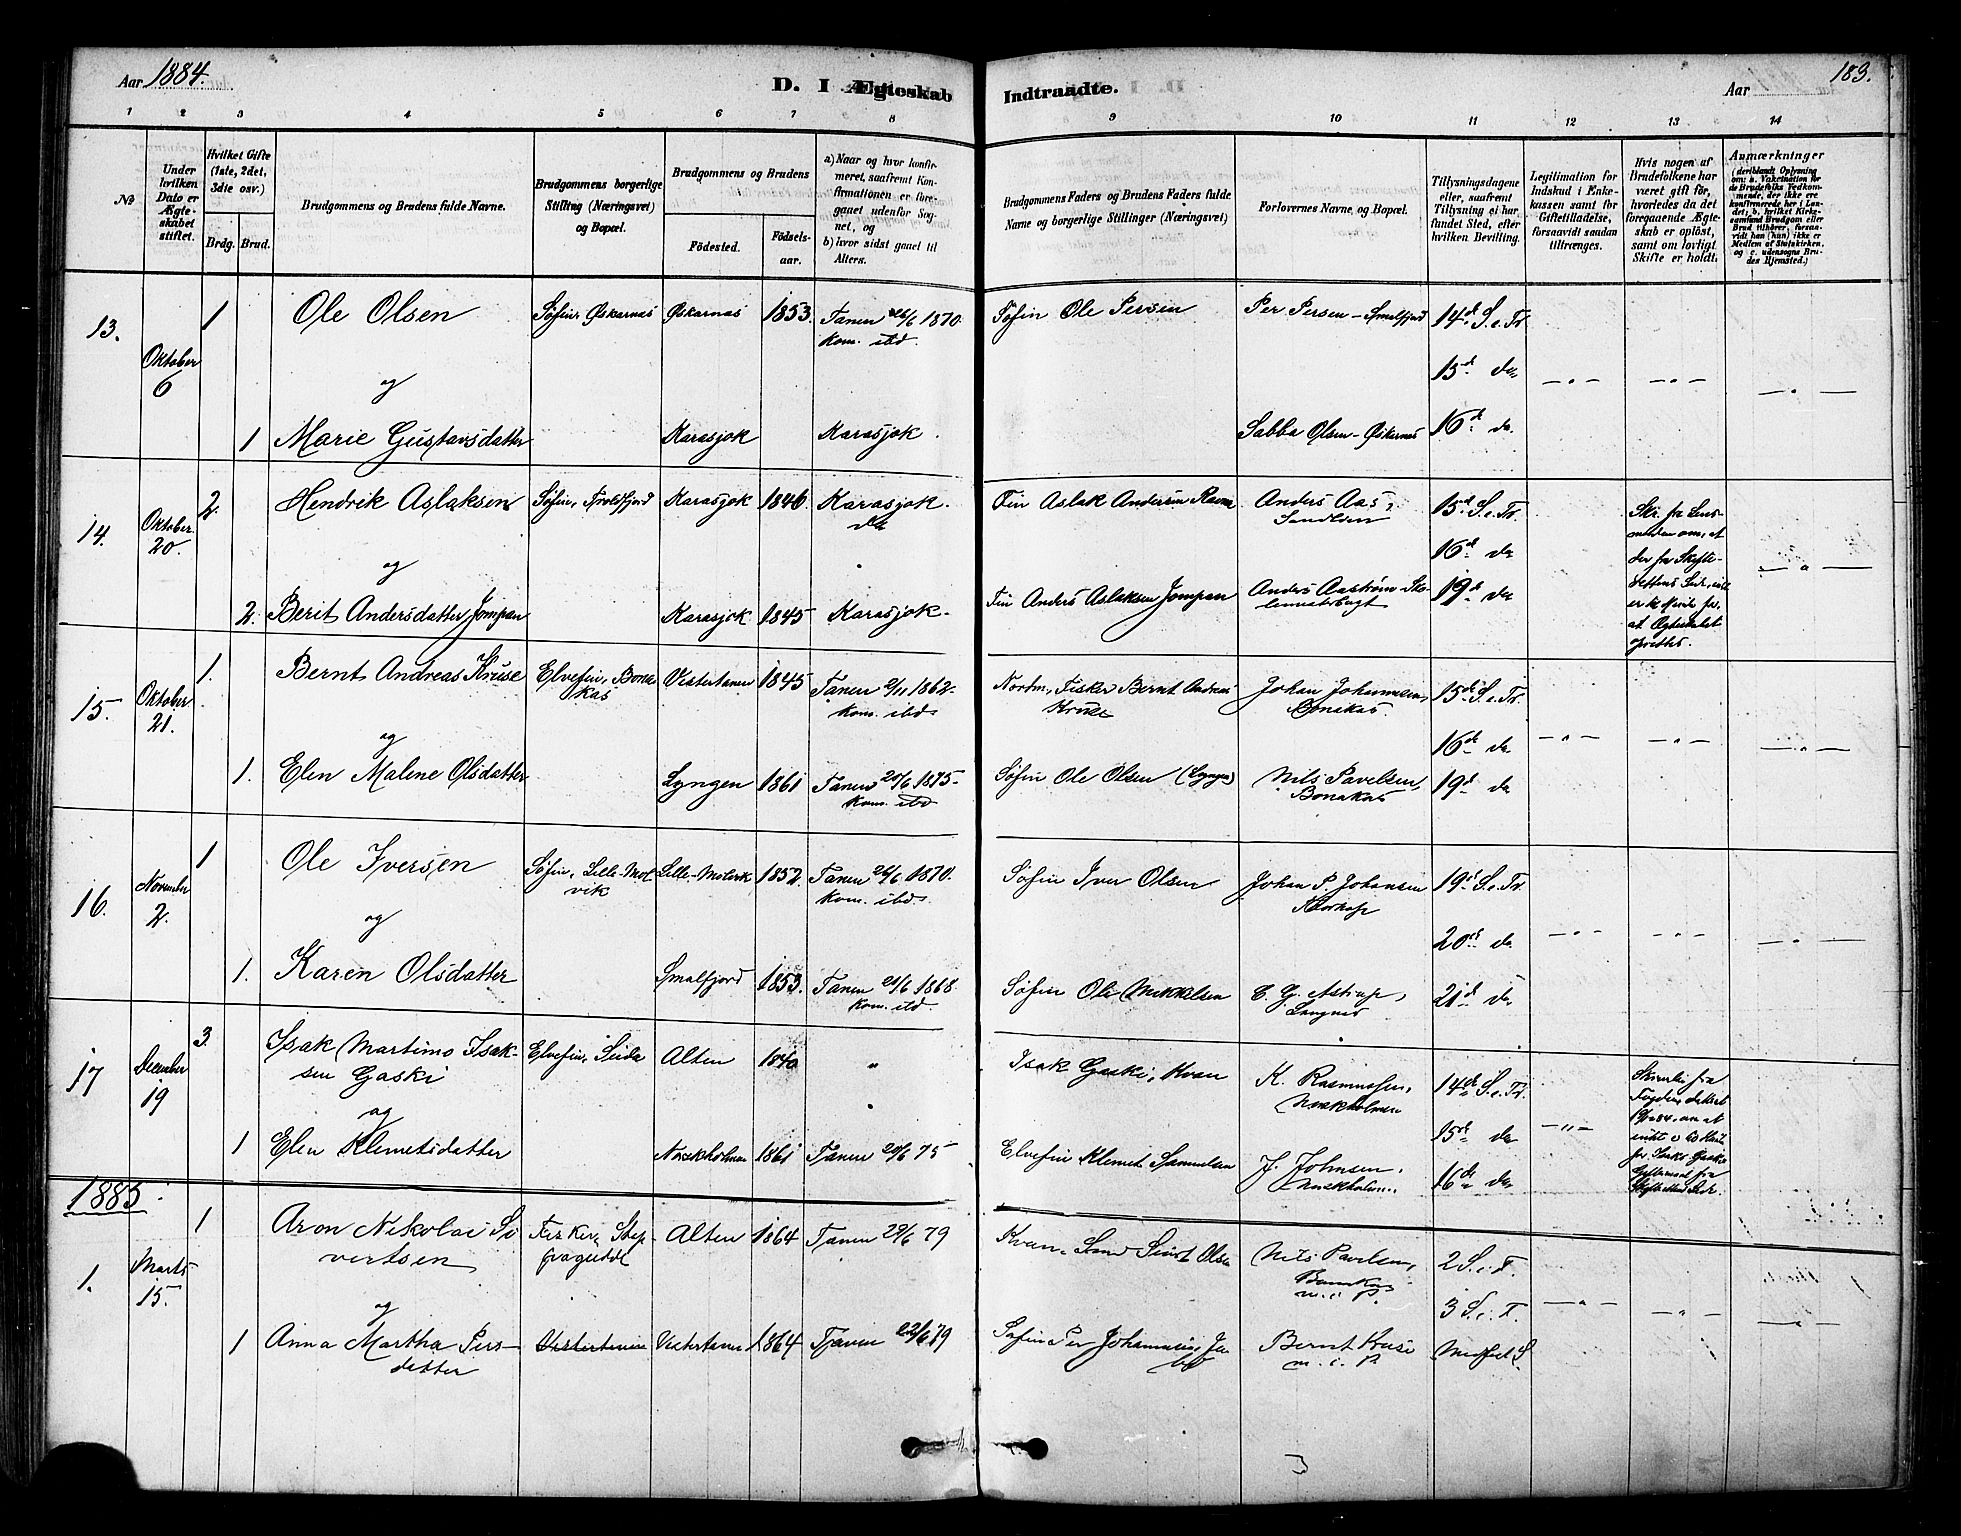 Aar 1884.
D. I Ægteskab Indtraadte.
Aar
183.
1 2 3 4 5 6 7 8 9 10 11 12 13 14
№
Under hvilken Dato er Ægteskabet stiftet.
Hvilket Gifte (1ste, 2det, 3die osv.)
Brdg. Brud.
Brudgommens og Brudens fulde Navne.
Brudgommens borgerlige Stilling (Næringsvei) og Bopæl.
Brudgommens og Brudens
Fødested.
Fødselsaar.
a) Naar og hvor konfirmeret, saafremt Konfirmationen er foregaaet udenfor Sognet, og
b) hvor sidst gaaet til Alters.
Brudgommens Faders og Brudens Faders fulde Navne og borgerlige Stillinger (Næringsvei)
Forlovernes Navne og Bopæl.
Tillysningsdagene eller, saafremt Tillysning ei har fundet Sted, efter hvilken Bevilling.
Legitimation for Indskud i Enkekassen samt for Giftetilladelse, forsaavidt saadan tiltrænges.
Hvis nogen af Brudefolkene har været gift før, hvorledes da det foregaaende Ægteskab er opløst, samt om lovligt Skifte er holdt.
Anmærkninger (deriblandt Oplysning om: a. Vakcination for de Brudefolks Vedkommende, der ikke ere konfirmerede her i Landet; b. hvilket Kirkesamfund Brudgom eller Brud tilhører, forsaavidt han (hun) ikke er Medlem af Statskirken, og c. udensogns Brudes Hjemsted.)
13. Oktober 6
1 Ole Olsen Søfin, Øskarnæs Øskarnæs 1853. Tanen 26/6 1870. kom. ibd. Søfin Ole Persen Per Persen - Smalfjord 14d. S. e. Tr.
og
15d. do
1 Marie Gustavsdatter Karasjok Karasjok. Sabba Olsen - Øskarnæs 16d. do.
14. Oktober 20.
2. Hendrik Aslaksen Søfin, Troldfjord Karasjok 1846 Karasjok. do Fin Aslak Andersen Ravna Anders Aas, 15d S. e. Tr.
og
16d do
2. Berit Andersdatter Jompan Karasjok 1845 Karasjok. Fin Anders Aslaksen Jompan Anders Aastrøm 19d do
15. Oktober 21.
1. Bernt Andreas Kruse Elvefin, Bonakas Vestertanen 1845 Tanen 2/11 1862. kom. ibd. Nordm., Fisker Bernt Andreas Kruse Johan Johannesen, Bonakas. 15d. S. e. Tr.
og
16d do
1. Elen Malene Olsdatter Lyngen 1861 Tanen 20/6 1875. kom. ibd Søfin Ole Olsen (Lyngen) Nils Pavelsen, Bonakas 19d do
16. November 2.
1 Ole Iversen Søfin, Lille-Molvik Lille-Molvik 1852. Tanen 26/6 1870. kom. ibd. Søfin Iver Olsen Johan P. Johansen 19d. S. e. Tr.
og
20de do
1. Karen Olsdatter Smalfjord 1853. Tanen 21/6 1868. kom. ibd. Søfin Ole Mikkelsen C. G. Astrup, Langnes 21d do
17 December 19
3. Isak Martimo Isaksen Gaski Elvefin, Seida Alten 1840 " Isak Gaski, Kvæn K. Rasmussen, Næsskholmen 14de S. e. Tr.
og
15de do
1 Elen Klemetsdatter 1861 Tanen 20/6 75 Elvefin Klemet Samuelsen J. Johnsen, 16de do
1885.
1. Marts 15.
1 Aron Nikolai Sivertsen Fisker, Alten 1864 Tanen 29/6 79 Kvæn Sivert Olsen Nils Pavelsen, Bonakas m. i. P. 2 S. i. F.
og
3 S. i. F.
1 Anna Martha Persdatter Vestertanen Vestertanen 1864 Tanen 22/6 79 Søfin Per Johannesen, Bernt Kruse m. i. P.